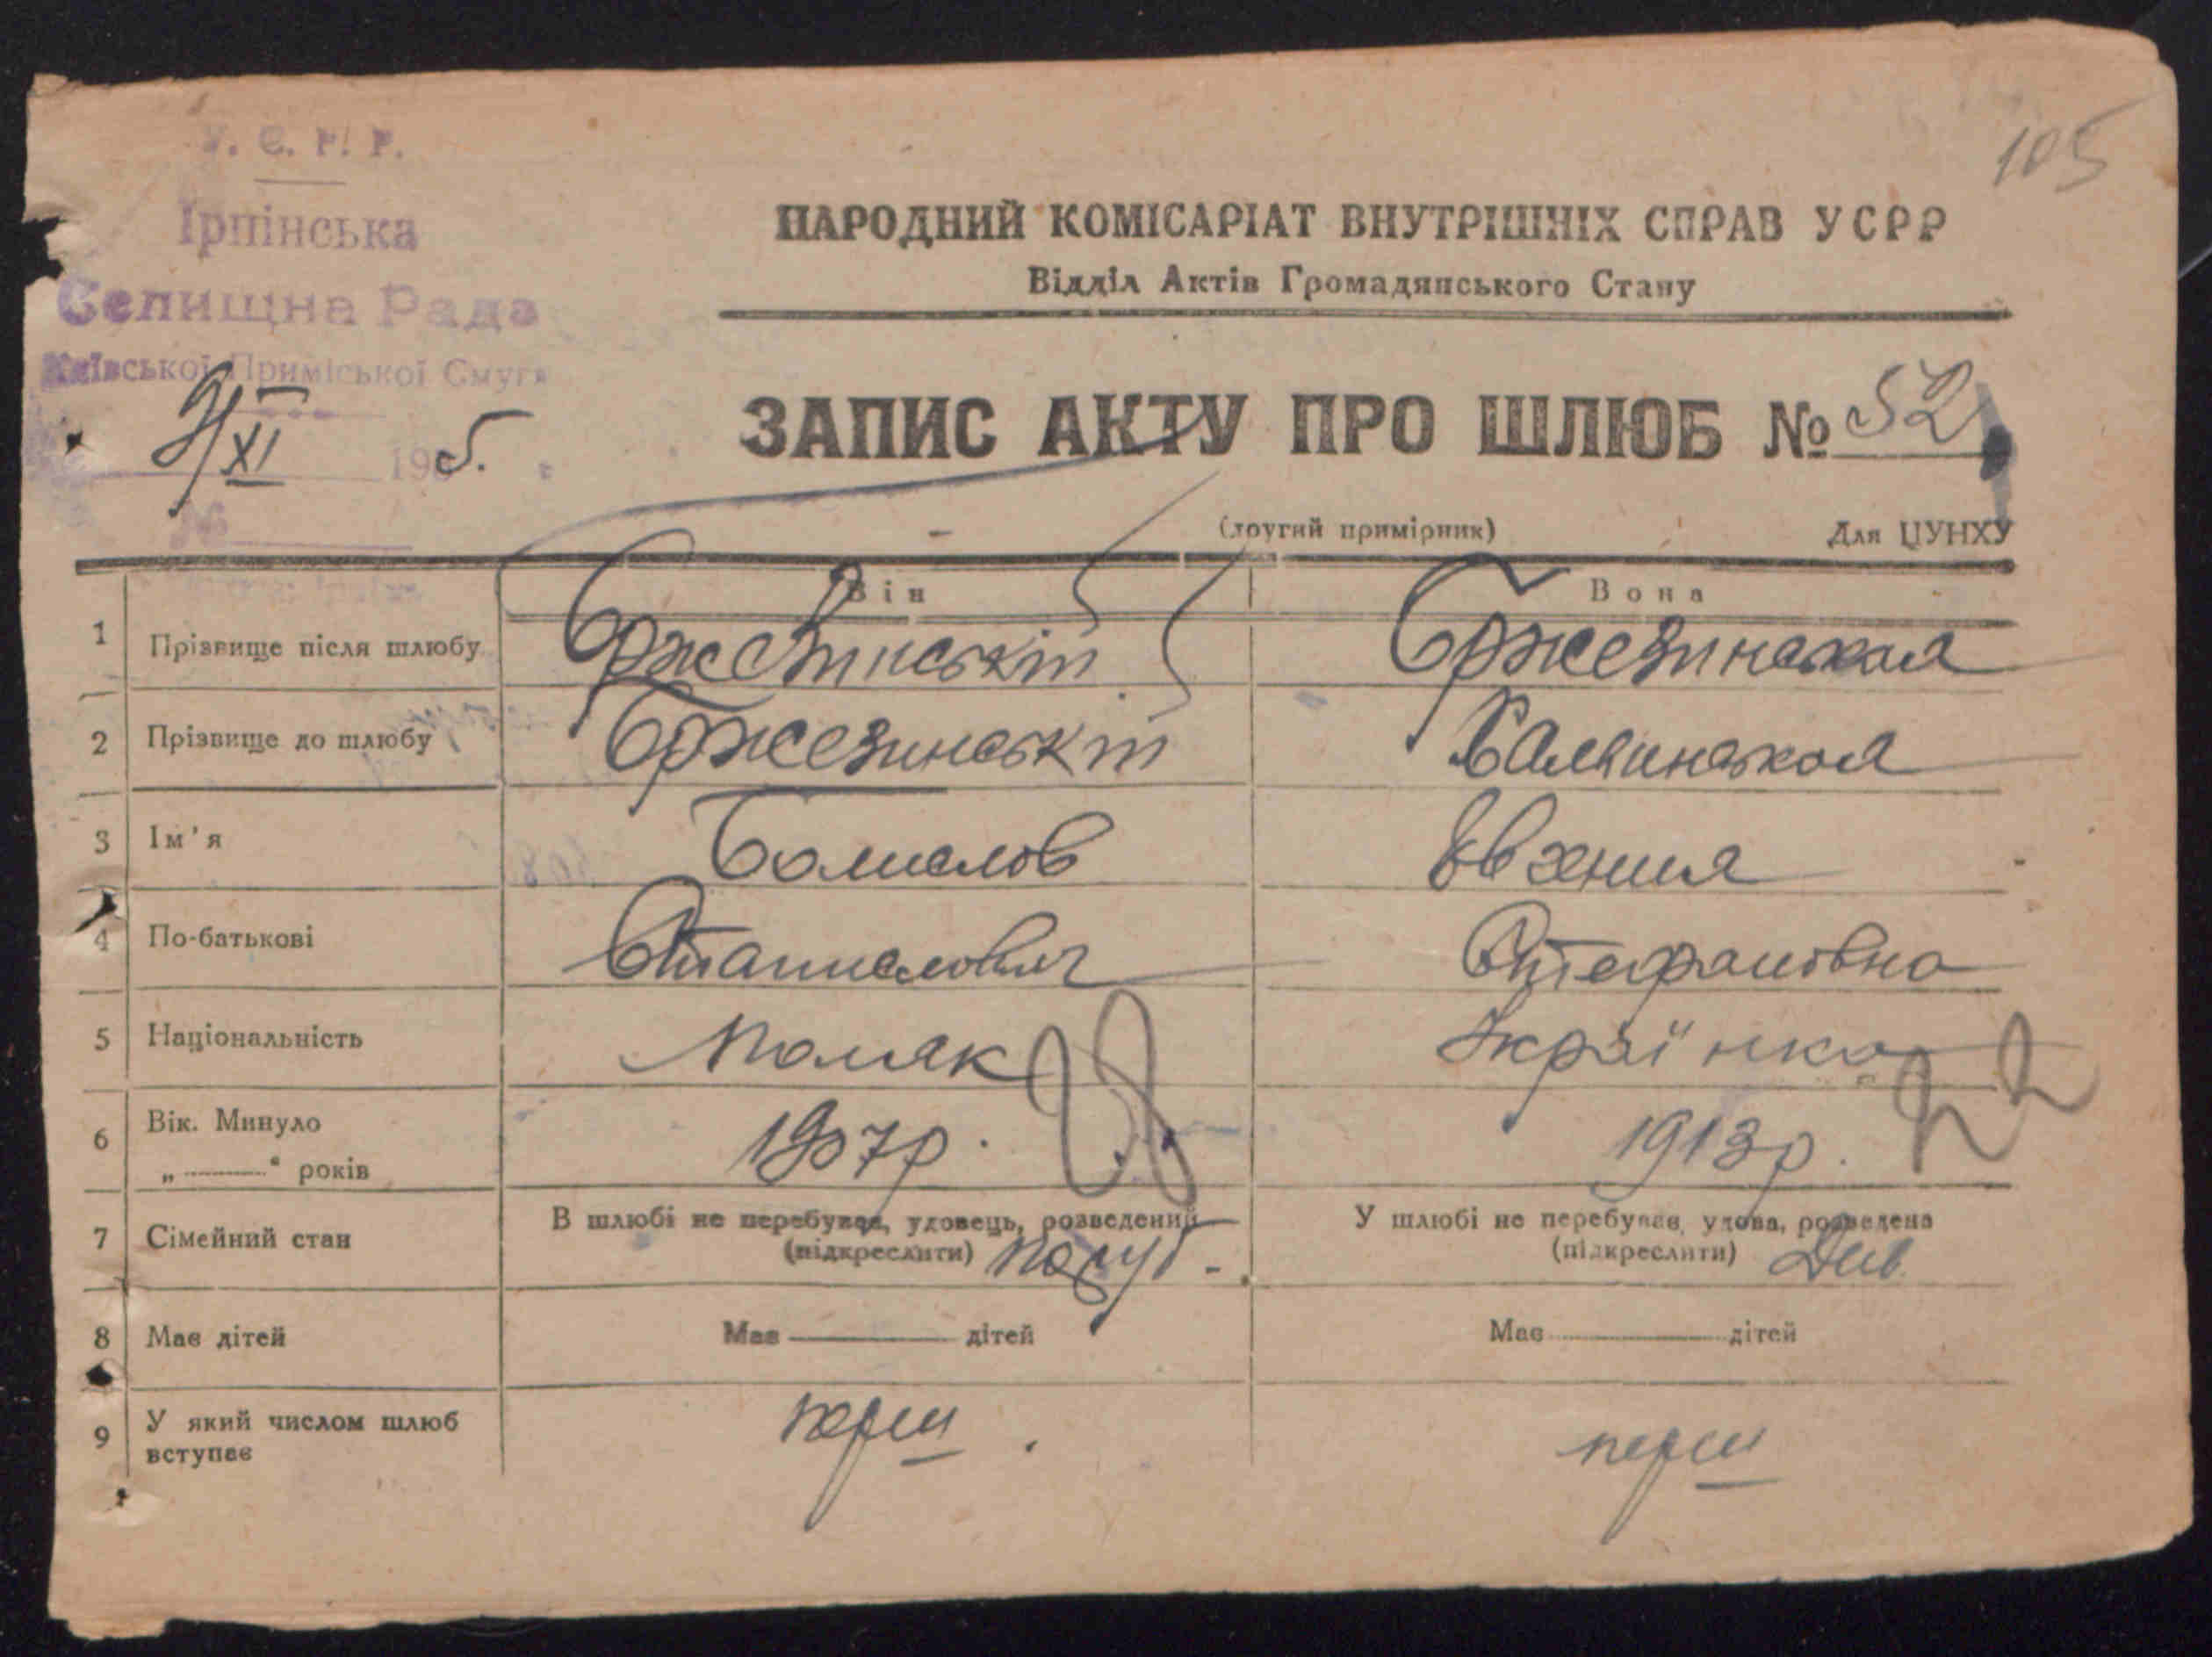 105
У. С. Р. Р.
Ірпінська
Селищна Рада
Київської Приміської Смуги
9/XI 1935.
№
НАРОДНИЙ КОМІСАРІАТ ВНУТРІШНІХ СПРАВ УСРР
Відділ Актів Громадянського Стану
ЗАПИС АКТУ ПРО ШЛЮБ № 52
(другий примірник) Для ЦУНХУ
Він Вона
1 Прізвище після шлюбу Бржезинській Бржезинская
2 Прізвище до шлюбу Бржезинській
3 Ім'я Болислов Евхения
4 По-батькові Станиславович Стефановна
5 Національність Поляк Українка
6 Вік. Минуло 1907р. 28 1913р. 22
„ “ років
7 Сімейний стан В шлюбі не перебував, удовець, розведений У шлюбі не перебував, удова, розведена
(підкреслити) (підкреслити) Дів
8 Має дітей Має дітей Має дітей
9 У який числом шлюб перш перш
вступає